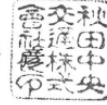 秋田中央
交通株式
會社證印